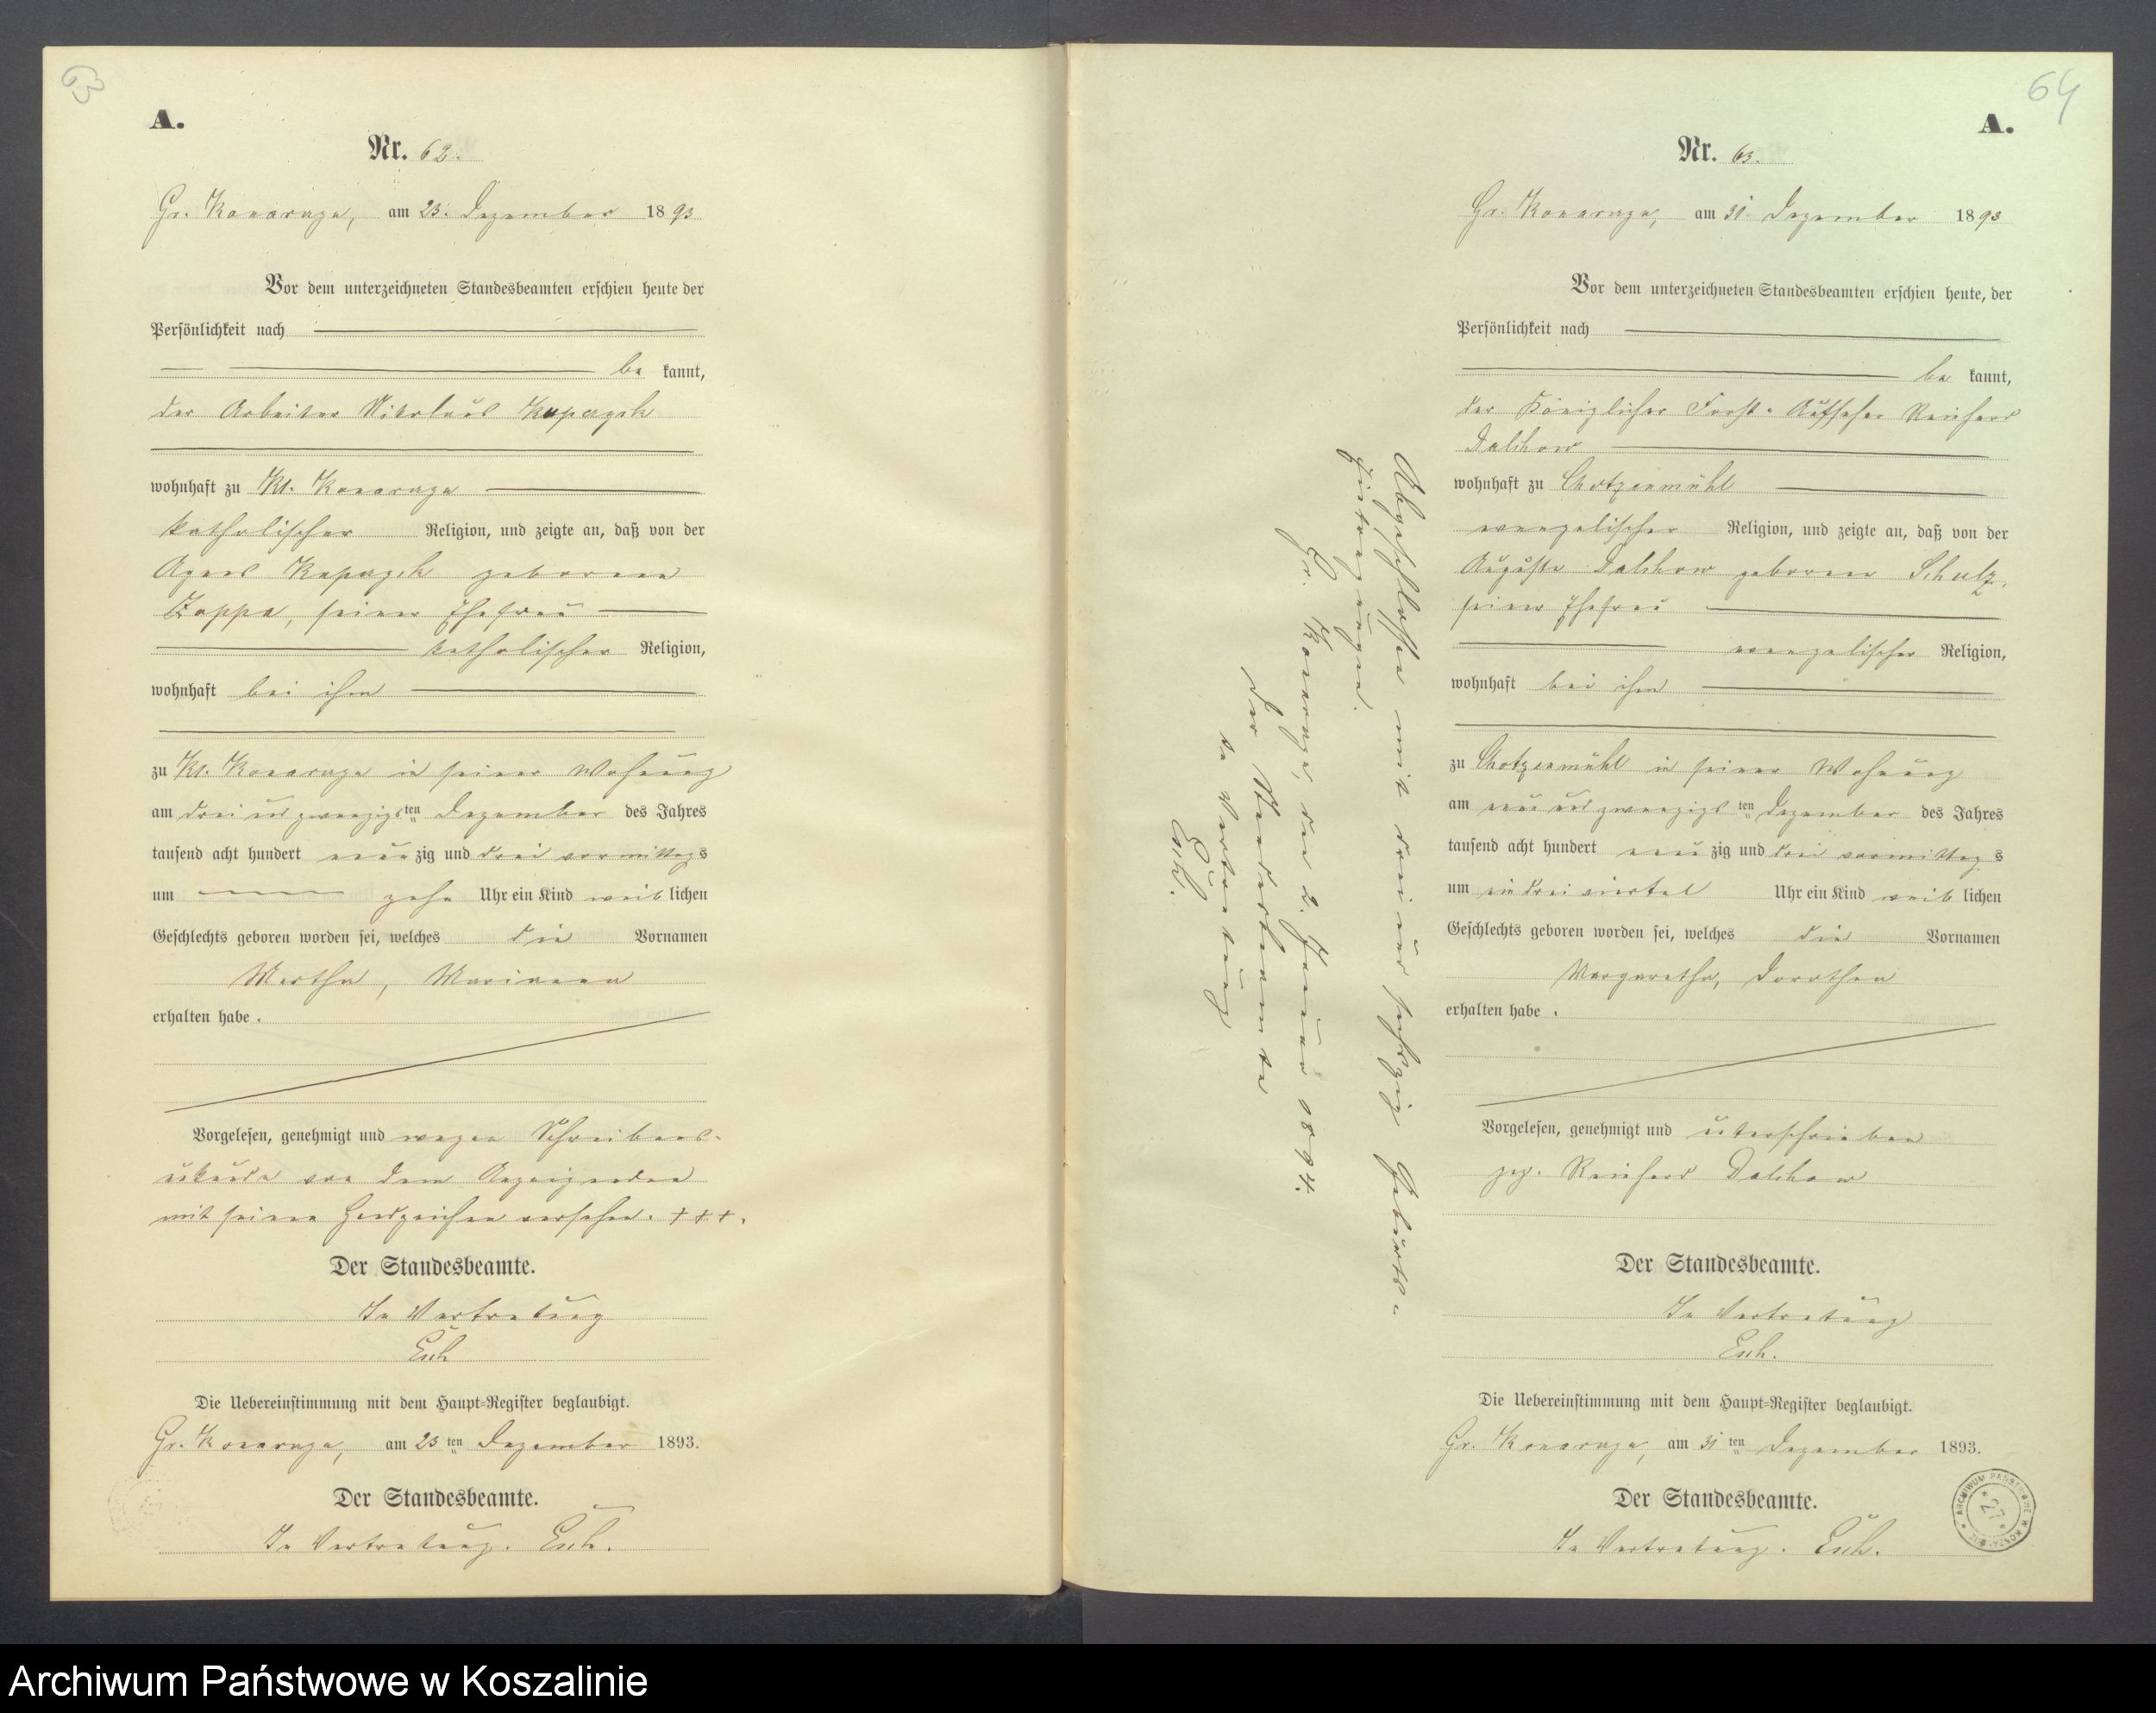 63
A.
Nr. 62.
Gr. Konarzyn, am 23. Dezember 1893
Vor dem unterzeichneten Standesbeamten erschien heute der
Persönlichkeit nach
be kannt,
der Arbeiter Nikolaus
wohnhaft zu Kl. Konarzyn
katholischer Religion, und zeigte an, daß von der
Agnes geborene
seiner Ehefrau
katholischer Religion,
wohnhaft bei ihm
zu Kl. Konarzyn in seiner Wohnung
am drei und zwanzigsten Dezember des Jahres
tausend acht hundert neunzig und drei vormittags
um zehn Uhr ein Kind weiblichen
Geschlechts geboren worden sei, welches die Vornamen
Martha, Marianna
erhalten habe.
Vorgelesen, genehmigt und wegen Schreibens-
unkunde von dem Anzeigenden
mit seinen Handzeichen versehen. +++.
Der Standesbeamte.
In Vertretung
Die Uebereinstimmung mit dem Haupt-Register beglaubigt.
Gr. Konarzyn, am 23ten Dezember 1893.
Der Standesbeamte.
In Vertretung.
64
A.
Nr. 63.
Gr. Konarzyn, am 31. Dezember 1893
Vor dem unterzeichneten Standesbeamten erschien heute, der
Persönlichkeit nach
be kannt,
der Königlicher Forst-Aufseher Reinhard
Dalchow
wohnhaft zu Chotzenmühl
evangelischer Religion, und zeigte an, daß von der
Auguste Dalchow geborene Schulz,
seiner Ehefrau
evangelischer Religion,
wohnhaft bei ihm
zu Chotzenmühl in seiner Wohnung
am neun und zwanzigsten Dezember des Jahres
tausend acht hundert neunzig und drei vormittags
um ein dreiviertel Uhr ein Kind weiblichen
Geschlechts geboren worden sei, welches die Vornamen
Margarethe, Dorothea
erhalten habe.
Vorgelesen, genehmigt und unterschrieben
gez. Reinhard Dalchow
Der Standesbeamte.
In Vertretung
Die Uebereinstimmung mit dem Haupt-Register beglaubigt.
Gr. Konarzyn, am 31ten Dezember 1893.
Der Standesbeamte.
In Vertretung.
Abgeschlossen mit drei und sechszig Geburts-
Eintragungen.
Gr. Konarzyn, den 2. Januar 1894.
Der Standesbeamte
In Vertretung
ARCHIWUM PAŃSTWOWE W KOSZALINIE
27
Archiwum Państwowe w Koszalinie